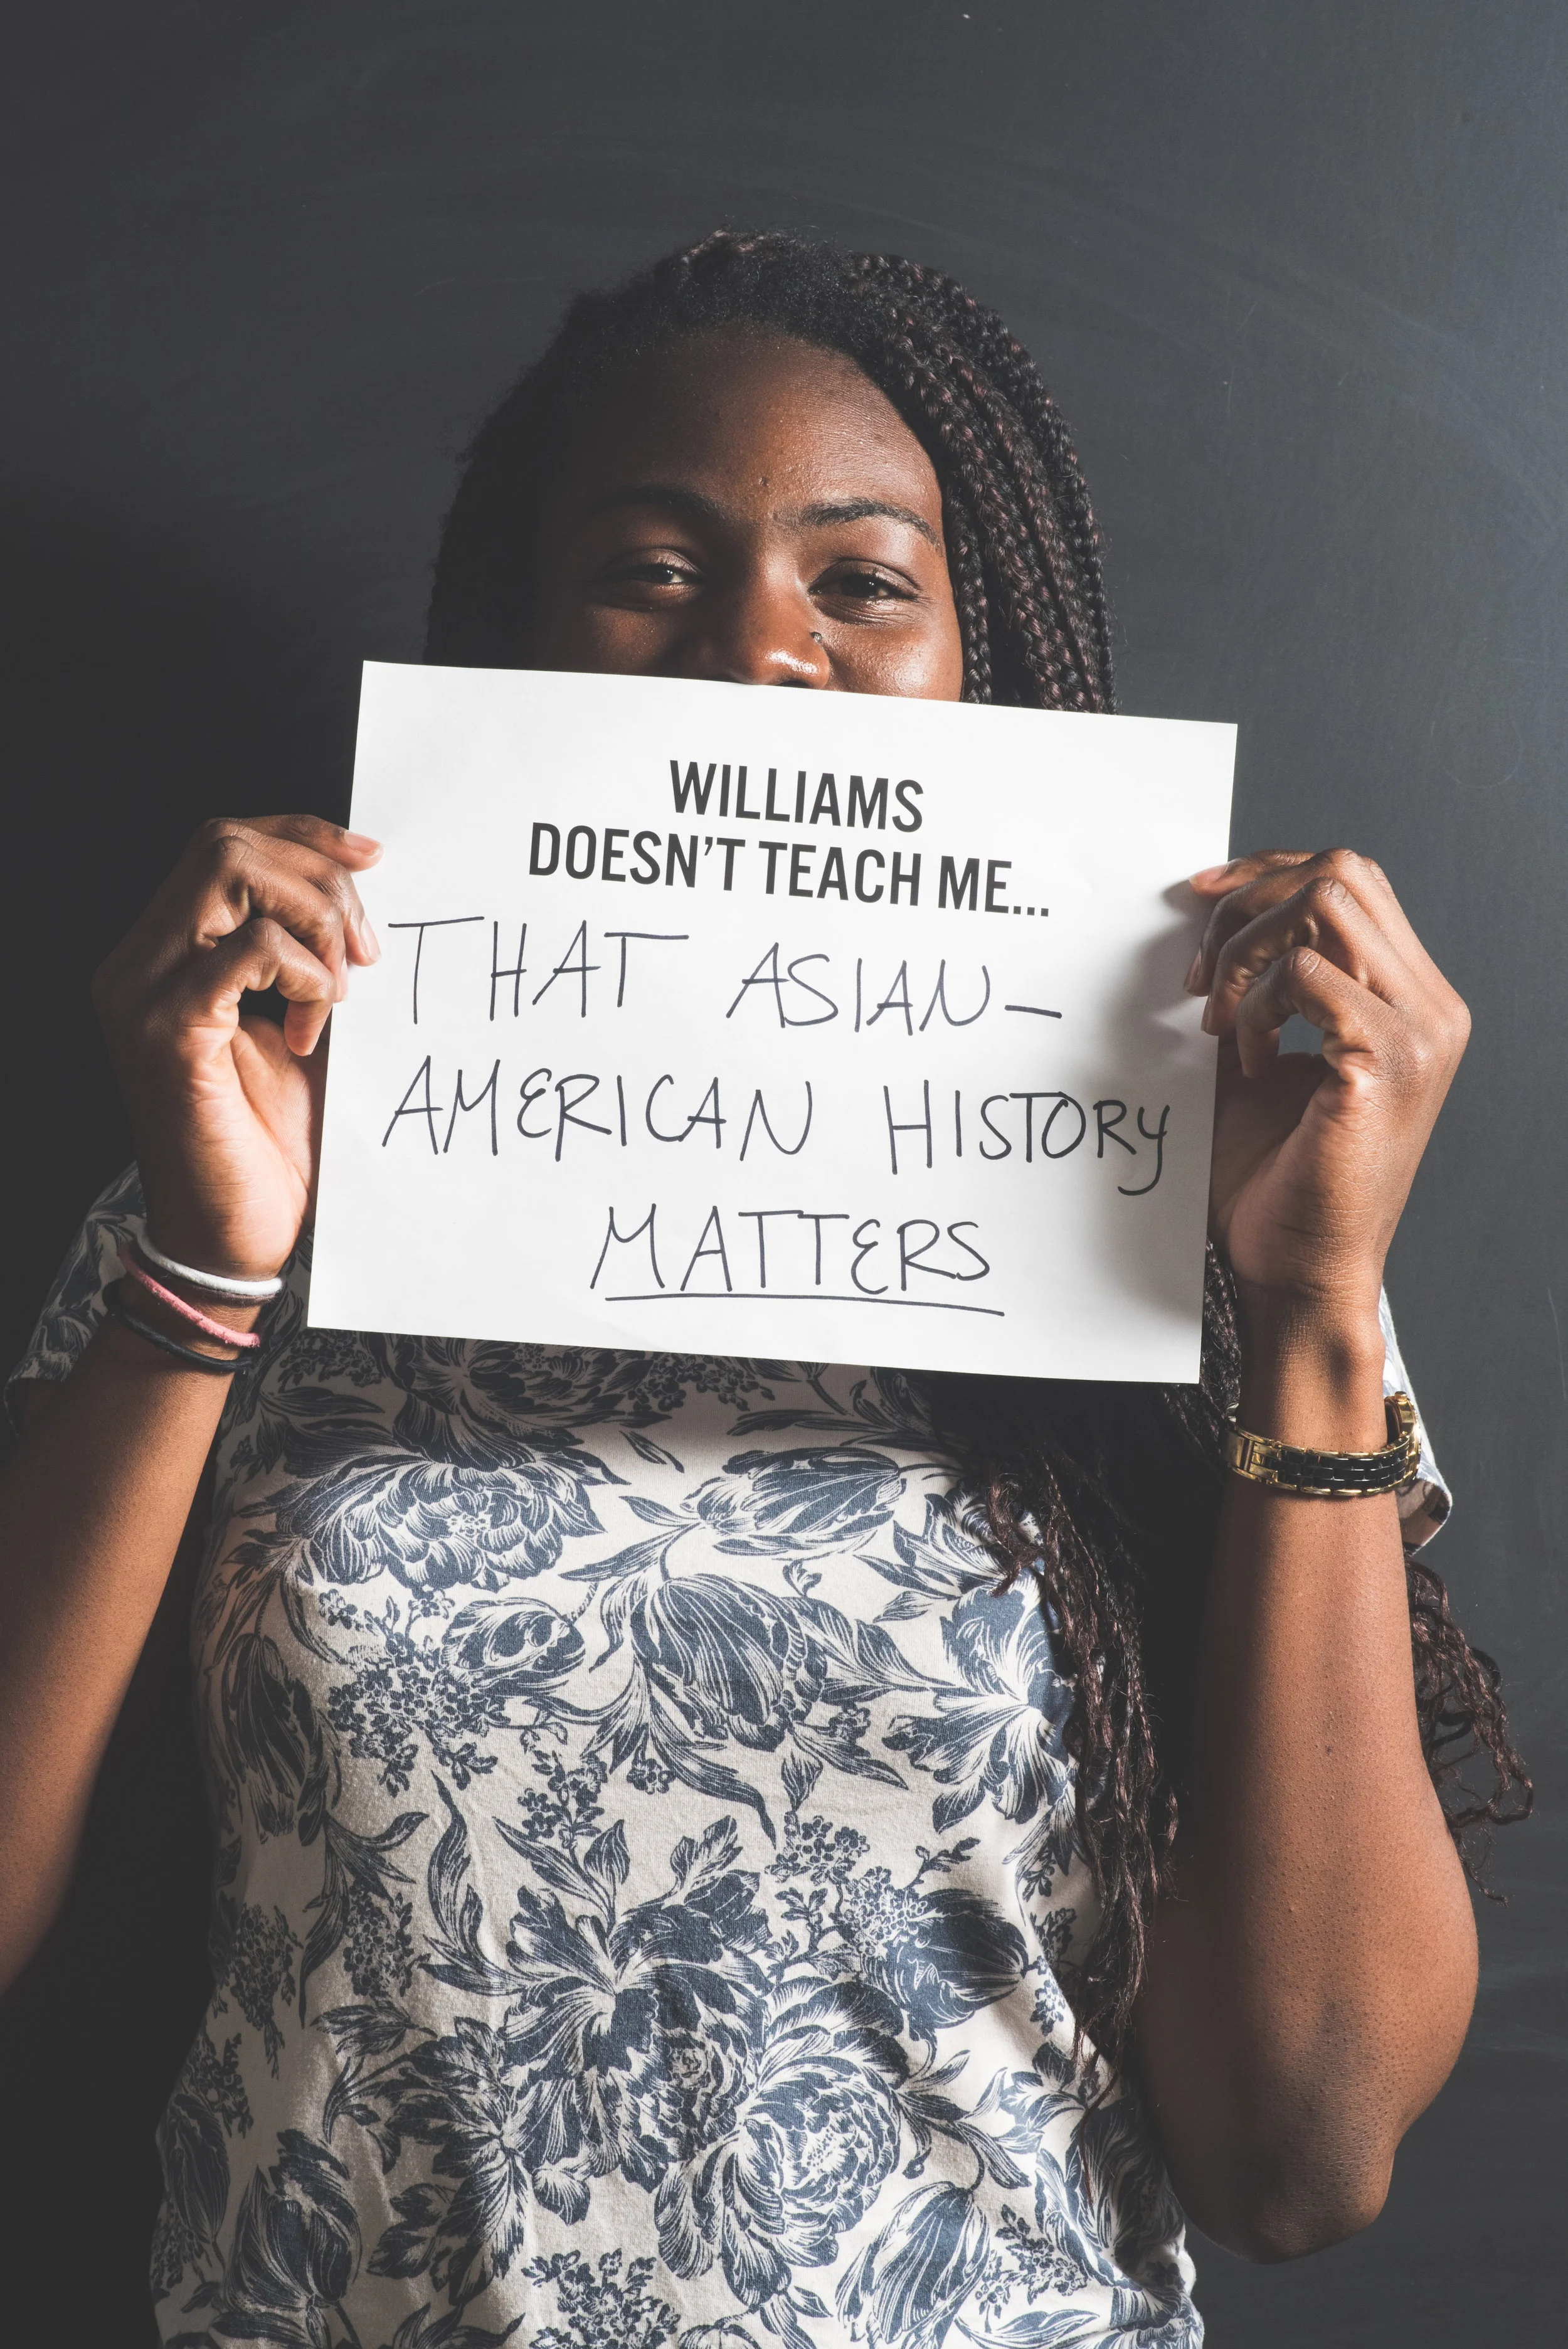 WILLIAMS
DOESN'T TEACH ME...
THAT ASIAN-
AMERICAN HISTORY
MATTERS